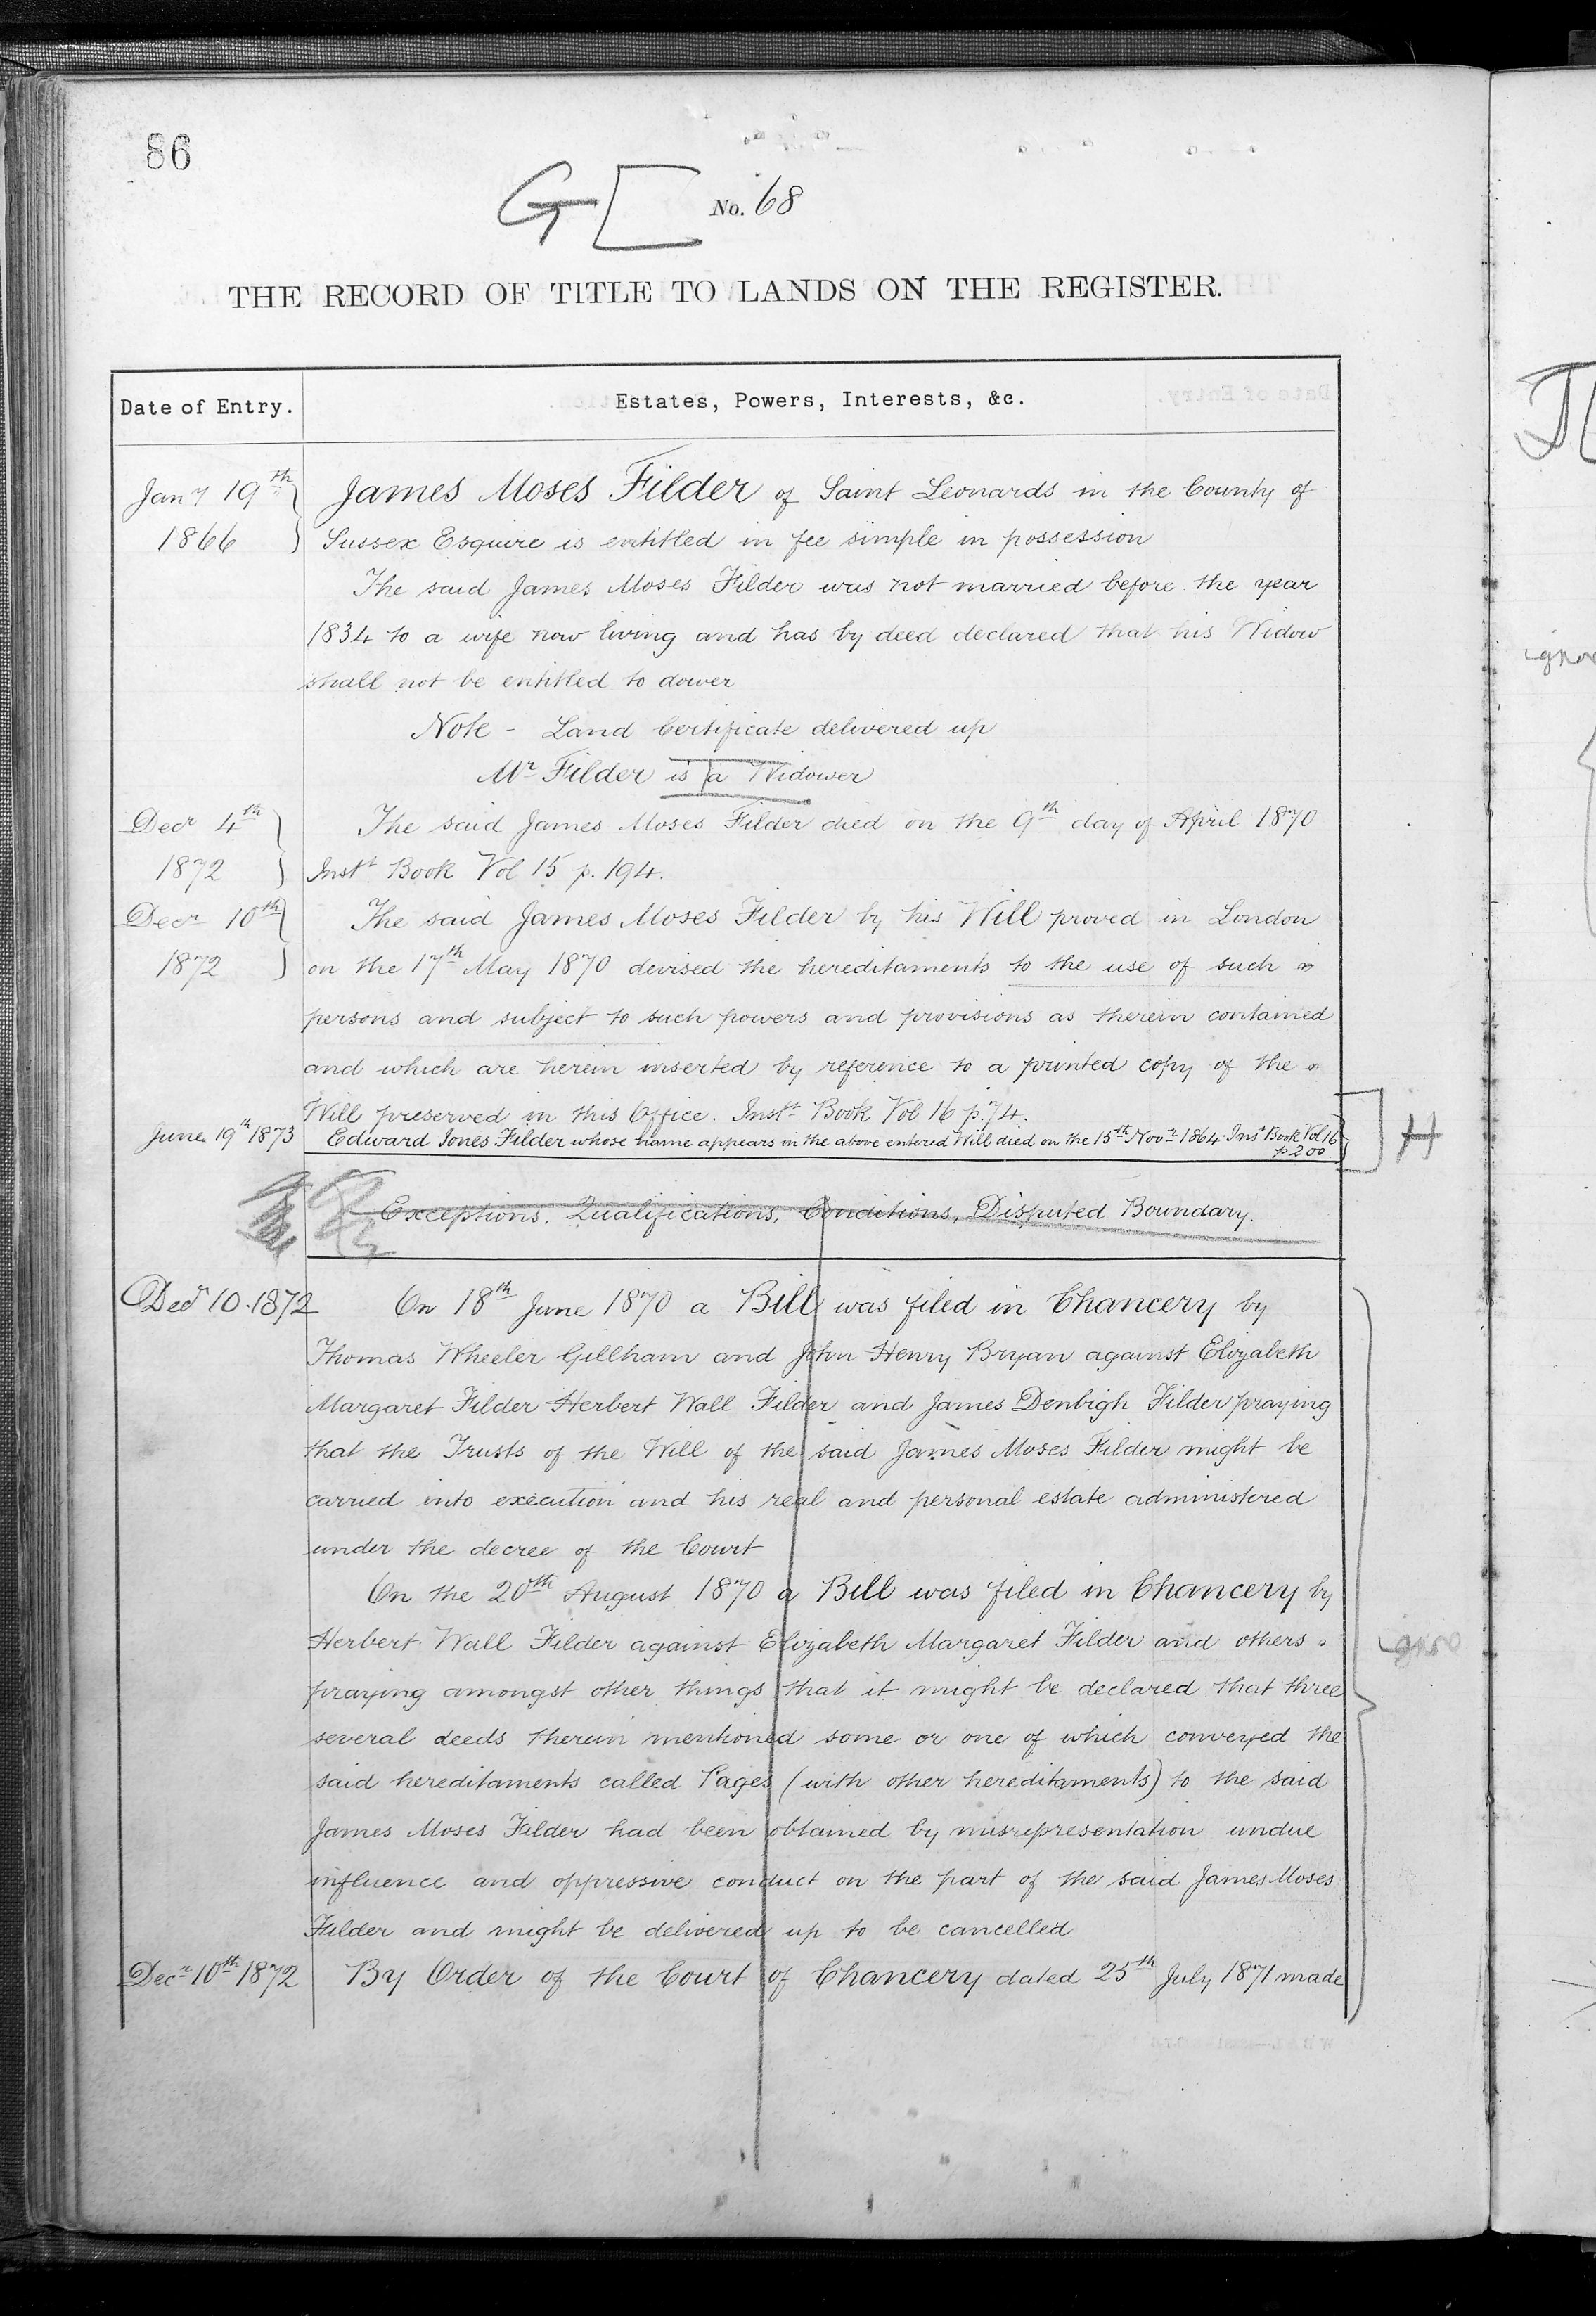 86
G
No. 68
THE RECORD OF TITLE TO LANDS ON THE REGISTER.
Date of Entry.
Estates, Powers, Interests, &c.
Jany 19th James Moses Filder of Saint Leonards in the County of
1866 Sussex Esquire is entitled in fee simple in possession
The said James Moses Filder was not married before the year
1834 to a wife now living and has by deed declared that his Widow
shall not be entitled to dower
Note - Land Certificate delivered up
Mr Filder is a Widower
Decr 4th The said James Moses Filder died on the 9th day of April 1870
1872 Instt Book Vol 15 p. 194.
Decr 10th The said James Moses Filder by his Will proved in London
1872 on the 17th May 1870 devised the hereditaments to the use of such
persons and subject to such powers and provisions as therein contained
and which are herein inserted by reference to a printed copy of the
Will preserved in this Office. Instt Book Vol 16 p. 74.
June 19th 1873 Edward Jones Filder whose name appears in the above entered Will died on the 15th Novr 1864 Inst Book Vol 16
p 200
H
Exceptions, Qualifications, Conditions, Disputed Boundary.
Decr 10. 1872 On 18th June 1870 a Bill was filed in Chancery by
Thomas Wheeler Gillham and John Henry Bryan against Elizabeth
Margaret Filder Herbert Wall Filder and James Denbigh Filder praying
that the Trusts of the Will of the said James Moses Filder might be
carried into execution and his real and personal estate administered
under the decree of the Court
On the 20th August 1870 a Bill was filed in Chancery by
Herbert Wall Filder against Elizabeth Margaret Filder and others
praying amongst other things that it might be declared that three
several deeds therein mentioned some or one of which conveyed the
said hereditaments called Pages (with other hereditaments) to the said
James Moses Filder had been obtained by misrepresentation undue
influence and oppressive conduct on the part of the said James Moses
Filder and might be delivered up to be cancelled
Decr 10th 1872 By Order of the Court of Chancery dated 25th July 1871 made